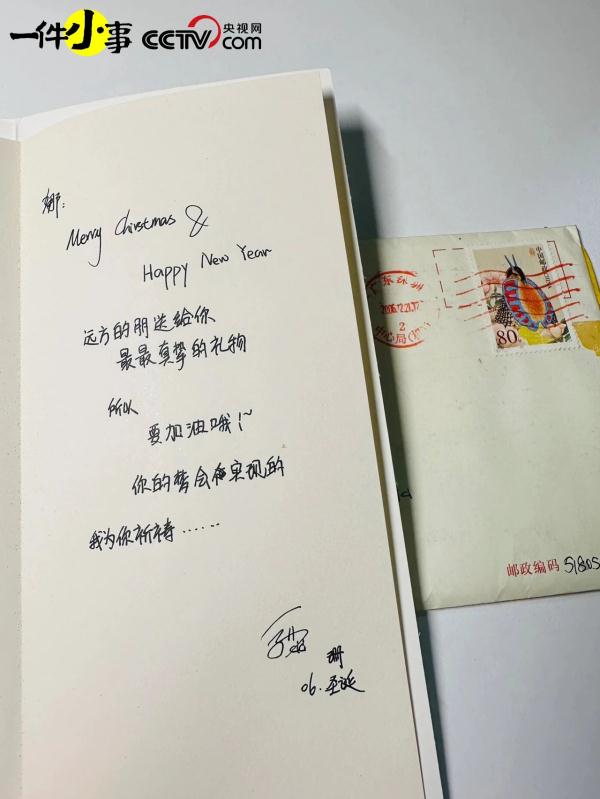 一件小事 CCTV 央视网
com
娜:
Merry Chirstmas &
Happy New Year
远方的朋送给你
最最真挚的礼物
所以
要加油哦!~
你的梦会实现的
我为你祈祷……
珊
06.圣诞
中国邮政
80
广东深圳
2006.12.21.17
2
中心局
邮政编码 51805